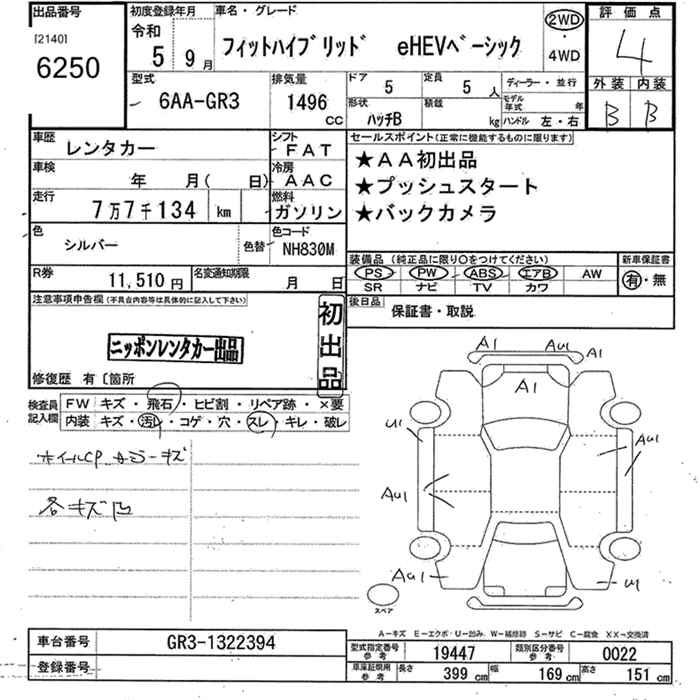 出品番号
[2140]
6250
初度登録年月
令和
5 9月
車名・グレード
フィットハイブリッド eHEVベーシック
2WD
・
4WD
評価点
4
外装 内装
B B
型式
6AA-GR3
排気量
1496
CC
ドア 5
定員 5 人
形状 ハッチB
積載 kg
ディーラー・並行
モデル年式 年
ハンドル 左・右
車歴 レンタカー
シフト FAT
車検 年 月( 日)
冷房 AAC
走行 7万7千134 km
燃料 ガソリン
色 シルバー
色替
色コード NH830M
R券 11,510 円
名変通知期限 月 日
セールスポイント(正常に機能するものに限ります)
★AA初出品
★プッシュスタート
★バックカメラ
装備品(純正品に限り○をつけてください)
新車保証書
PS PW ABS エアB AW
SR ナビ TV カワ
有・無
後日品 保証書・取説
注意事項申告欄(不具合内容等は具体的に記入して下さい)
ニッポンレンタカー出品
初出品
修復歴 有〔箇所
検査員記入欄
FW キズ・飛石・ヒビ割・リペア跡・×要
内装 キズ・汚レ・コゲ・穴・スレ・キレ・破レ
各キズ凹
A1 AU1 A1
A1
U1
AU1
AU1
AU1
U1
スペア
A-キズ E-エクボ・U-凹み W-補修跡 S-サビ C-腐食 XX-交換済
車台番号 GR3-1322394
登録番号
型式指定番号参考 19447
類別区分番号参考 0022
車庫証明用参考 長さ 399 cm 幅 169 cm 高さ 151 cm